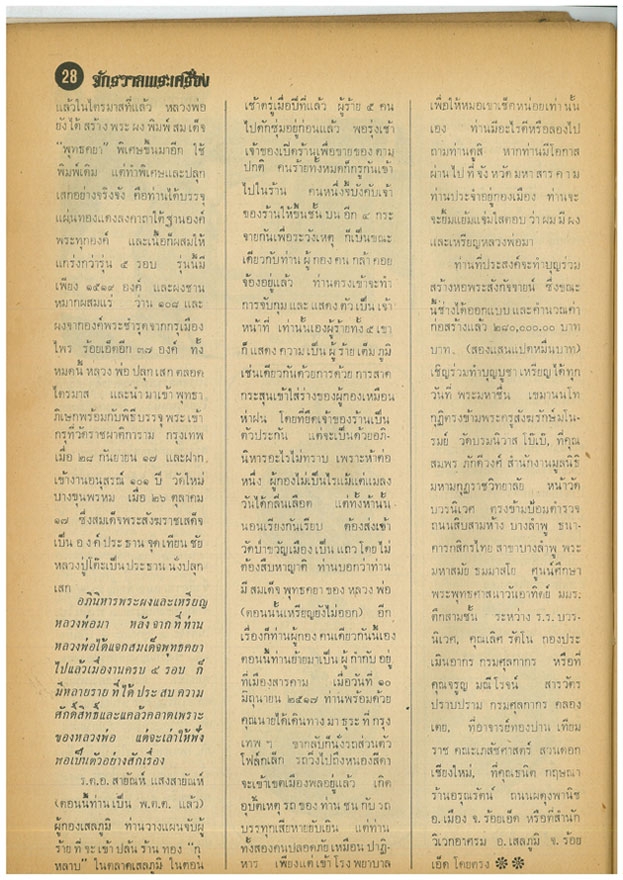 28 จักรวาลพระเครื่อง
แล้วในไตรมาสที่แล้ว หลวงพ่อ
ยังได้สร้างพระผงพิมพ์สมเด็จ
"พุทธคยา" พิเศษขึ้นมาอีก ใช้
พิมพ์เดิม แต่ทำพิเศษและปลุก
เสกอย่างจริงจัง คือท่านได้บรรจุ
แผ่นทองแดงลงคาถาใต้ฐานองค์
พระทุกองค์ และเนื้อก็ผสมให้
แกร่งกว่ารุ่น ๕ รอบ รุ่นนี้มี
เพียง ๑๕๑๙ องค์ และผงชาน
หมากผสมแร่ ว่าน ๑๐๘ และ
ผงจากองค์พระชำรุดจากกรุเมือง
ไพร ร้อยเอ็ดอีก ๓๗ องค์ ทั้ง
หมดนี้ หลวงพ่อ ปลุกเสก ตลอด
ไตรมาส และนำมาเข้า พุทธา
ภิเษกพร้อมกับพิธีบรรจุพระเข้า
กรุที่วัดราชผาติการาม กรุงเทพ
เมื่อ ๒๘ กันยายน ๑๗ และฝาก
เข้างานอนุสรณ์ ๑๐๑ ปี วัดใหม่
บางขุนพรหม เมื่อ ๒๖ ตุลาคม
๑๗ ซึ่งสมเด็จพระสังฆราชเสด็จ
เป็นองค์ประธาน จุดเทียนชัย
หลวงปู่โต๊ะเป็นประธาน นั่งปลุก
เสก
อภินิหารพระผงและเหรียญ
หลวงพ่อมา หลังจากที่ท่าน
หลวงพ่อได้แจกสมเด็จพุทธคยา
ไปแล้วเมื่องานครบ ๕ รอบ ก็
มีหลายรายที่ได้ประสบความ
ศักดิ์สิทธิ์และแคล้วคลาดเพราะ
ของหลวงพ่อ แต่จะเล่าให้ฟัง
พอเป็นตัวอย่างสักเรื่อง
ร.ต.อ. สายัณห์ แสงสายัณห์
(ตอนนี้ท่านเป็น พ.ต.ต. แล้ว)
ผู้กองเสลภูมิ ท่านวางแผนจับผู้
ร้ายที่จะเข้าปล้นร้านทอง "กุ
หลาบ" ในตลาดเสลภูมิ ในตอน
เช้าตรู่เมื่อปีที่แล้ว ผู้ร้าย ๕ คน
ไปดักซุ่มอยู่ก่อนแล้ว พอรุ่งเช้า
เจ้าของเปิดร้านเพื่อขายของตาม
ปกติ คนร้ายทั้งหมดก็กรูกันเข้า
ไปในร้าน คนหนึ่งจี้บังคับเจ้า
ของร้านให้ขึ้นชั้นบน อีก ๔ กระ
จายกันเพื่อระวังเหตุ ก็เป็นขณะ
เดียวกับท่านผู้กองคนกล้าคอย
จ้องอยู่แล้ว ท่านตรงเข้าจะทำ
การจับกุมและแสดงตัวเป็นเจ้า
หน้าที่ เท่านั้นเองผู้ร้ายทั้ง ๕ เขา
ก็แสดงความเป็นผู้ร้ายเต็มภูมิ
เช่นเดียวกันด้วยการด้วย การสาด
กระสุนเข้าใส่ร่างของผู้กองเหมือน
ห่าฝน โดยที่ยึดเจ้าของร้านเป็น
ตัวประกัน แต่จะเป็นด้วยอภิ-
นิหารอะไรไม่ทราบ เพราะห้าต่อ
หนึ่ง ผู้กองไม่เป็นไรแม้แต่แมลง
วันได้กลิ่นเลือด แต่ทั้งห้านั้น
นอนเรียงกันเรียบ ต้องส่งเข้า
วัดบำขวัญเมืองเป็นแถวโดยไม่
ต้องสืบหาญาติ ท่านบอกว่าท่าน
มีสมเด็จพุทธคยา ของหลวงพ่อ
(ตอนนั้นเหรียญยังไม่ออก) อีก
เรื่องก็ท่านผู้กอง คนเดียวกันนี้เอง
ตอนนี้ท่านย้ายมาเป็นผู้กำกับอยู่
ที่เมืองสารคาม เมื่อวันที่ ๑๐
มิถุนายน ๒๕๑๗ ท่านพร้อมด้วย
คุณนายได้เดินทางมาธุระที่กรุง
เทพ ฯ ขากลับก็นั่งรถส่วนตัว
โฟล์กเล็ก รถวิ่งไปถึงหนองสีดา
จะเข้าเขตเมืองพลอยู่แล้ว เกิด
อุบัติเหตุรถของท่านชนกับรถ
บรรทุกเสียหายยับเยิน แต่ท่าน
ทั้งสองคนปลอดภัยเหมือนปาฏิ-
หาร เพียงแต่เข้าโรงพยาบาล
เพื่อให้หมอเขาเช็คหน่อยเท่านั้น
เอง ท่านมีอะไรดีหรือลองไป
ถามท่านดูสิ หากท่านมีโอกาส
ผ่านไปที่จังหวัดมหาสารคาม
ท่านประจำอยู่กองเมือง ท่านจะ
จะยิ้มแย้มแจ่มใสตอบว่าผมมีผง
และเหรียญหลวงพ่อมา
ท่านที่ประสงค์จะทำบุญร่วม
สร้างหอพระสังกัจจายน์ ซึ่งขณะ
นี้ช่างได้ออกแบบ และคำนวณค่า
ก่อสร้างแล้ว ๒๘๐,๐๐๐.๐๐ บาท
บาท. (สองแสนแปดหมื่นบาท)
เชิญร่วมทำบุญบูชา เหรียญได้ทุก
วันที่ พระมหาชื่น เขมานนโท
กุฏิตรงข้ามพระครูสังฆรักษ์มโน-
รมย์ วัดบรมนิวาส โบ๊เบ๊, ที่คุณ
สมพร ภักดีวงศ์ สำนักงานมูลนิธิ
มหามกุฏราชวิทยาลัย หน้าวัด
บวรนิเวศ ตรงข้ามป้อมตำรวจ
ถนนสิบสามห้าง บางลำพู ธนา-
คารกสิกรไทย สาขาบางลำพู พระ
มหาสมัย ธมมาสโย ศูนย์ศึกษา
พระพุทธศาสนาวันอาทิตย์ มมร.
ตึกสามชั้น ระหว่าง ร.ร. บวร-
นิเวศ, คุณเลิศ รัตโน กองประ
เมินอากร กรมศุลกากร หรือที่
คุณจรูญ มณีโรจน์ สารวัตร
ปราบปราม กรมศุลกากร คลอง
เตย, ที่อาจารย์ทองปาน เทียม
ราช คณะเภสัชศาสตร์ สวนดอก
เชียงใหม่, ที่คุณชนิต กฤษณา
ร้านอรุณรัตน์ ถนนผดุงพานิช
อ. เมือง จ. ร้อยเอ็ด หรือที่สำนัก
วิเวกอาศรม อ. เสลภูมิ จ. ร้อย
เอ็ด โดยตรง